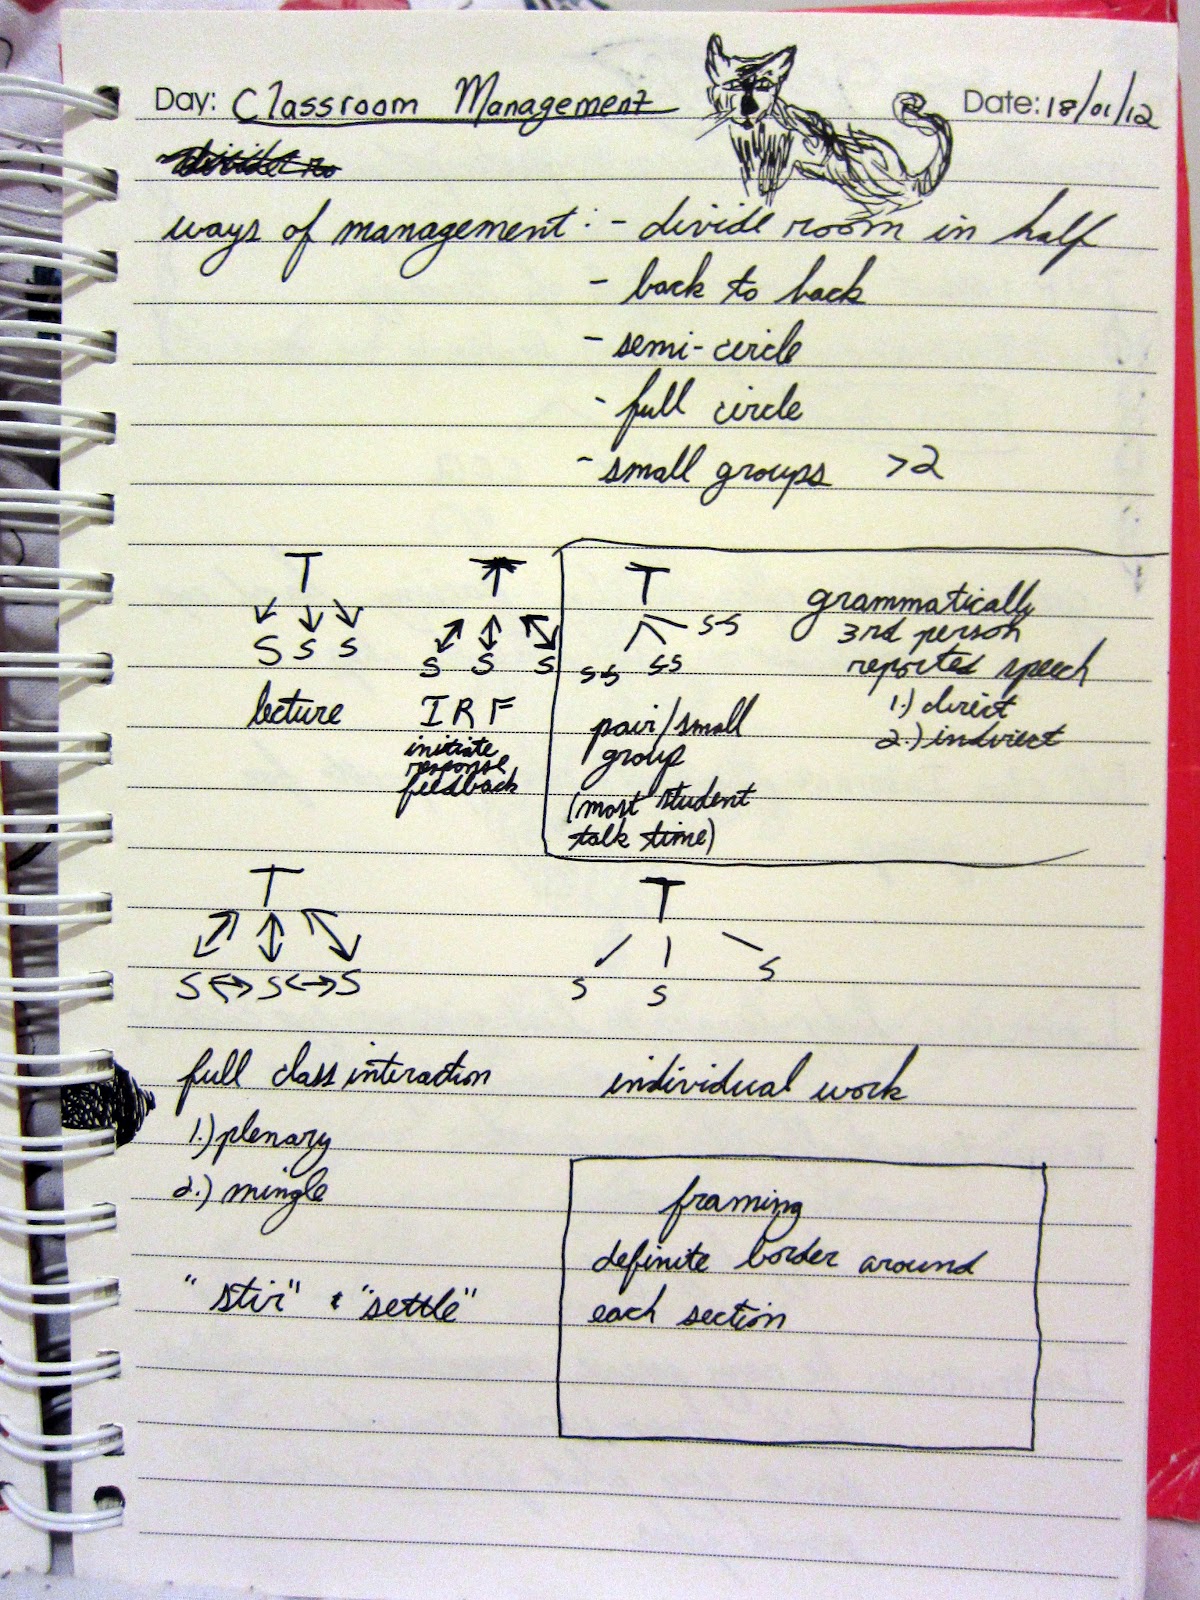 Day: Classroom Management Date: 18/01/12
ways of management: - divide room in half
- back to back
- semi-circle
- full circle
- small groups >2
T
S S S
lecture
T
S S S
I R F
initiate
response
feedback
T
S-S S-S S-S
pair/small
group
(most student
talk time)
grammatically
3rd person
reported speech
1.) direct
2.) indirect
T
S S S
full class interaction
1.) plenary
2.) mingle
T
S S S
individual work
"stir" & "settle"
framing
definite border around
each section